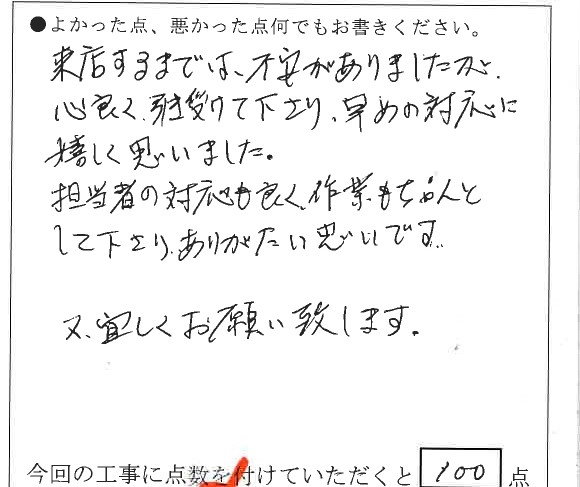 ●よかった点、悪かった点何でもお書きください。
来店するまでは、不安がありましたが、
心良く、引受けて下さり、早めの対応に
嬉しく思いました。
担当者の対応も良く、作業もちゃんと
して下さり、ありがたい思いです。
又、宜しくお願い致します。
今回の工事に点数を付けていただくと 100 点